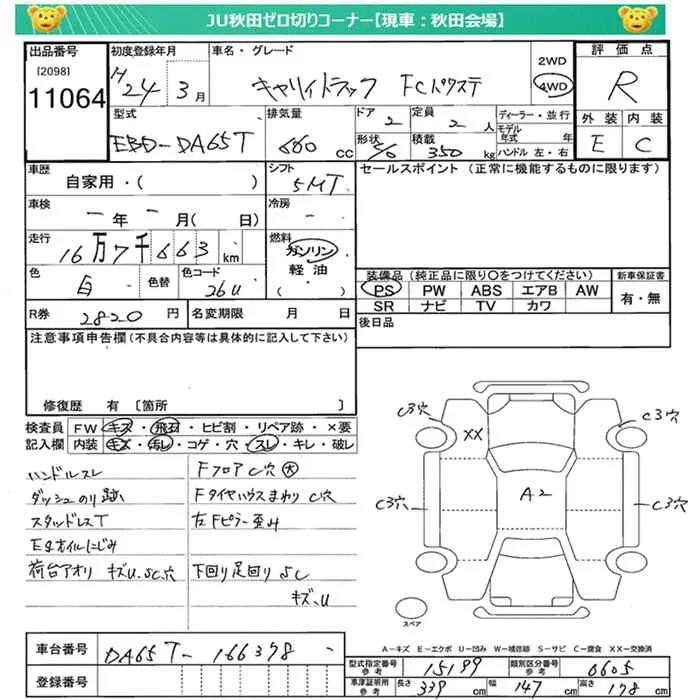 JU秋田ゼロ切りコーナー【現車：秋田会場】
出品番号
[2098]
11064
初度登録年月
H24 3月
車名・グレード
キャリイトラック FCパワステ
2WD
4WD
評価点
R
外装 内装
E C
型式
EBD-DA65T
排気量
660 cc
ドア 2
形状
定員 2人
積載 350 kg
ディーラー・並行
モデル年式 年
ハンドル 左・右
車歴
自家用・( )
シフト
5MT
セールスポイント（正常に機能するものに限ります）
車検
－年－月(日)
冷房
－
走行
16万7千663km
燃料
ガソリン
軽油
( )
色
白
色替
色コード
26U
装備品（純正品に限り〇をつけてください）
PS PW ABS エアB AW
SR ナビ TV カワ
新車保証書
有・無
R券 2820円
名変期限 月 日
後日品
注意事項申告欄（不具合内容等は具体的に記入して下さい）
修復歴 有〔箇所 〕
検査員記入欄
FW キズ・飛石・ヒビ割・リペア跡・×要
内装 キズ・汚レ・コゲ・穴・スレ・キレ・破レ
ハンドルスレ
ダッシュのり跡
スタッドレスT
Egオイルにじみ
荷台アオリ キズU、SC穴
FフロアC穴大
FタイヤハウスまわりC穴
左Fピラー歪み
下回り足回りSC
キズ、U
C3穴
XX
C3穴
A2
C3穴
C3穴
スペア
A－キズ E－エクボ U－凹み W－補修跡 S－サビ C－腐食 XX－交換済
車台番号 DA65T-166398
登録番号
型式指定番号 参考 15189
類別区分番号 参考 0605
車庫証明用 参考 長さ 339cm 幅 147cm 高さ 178cm